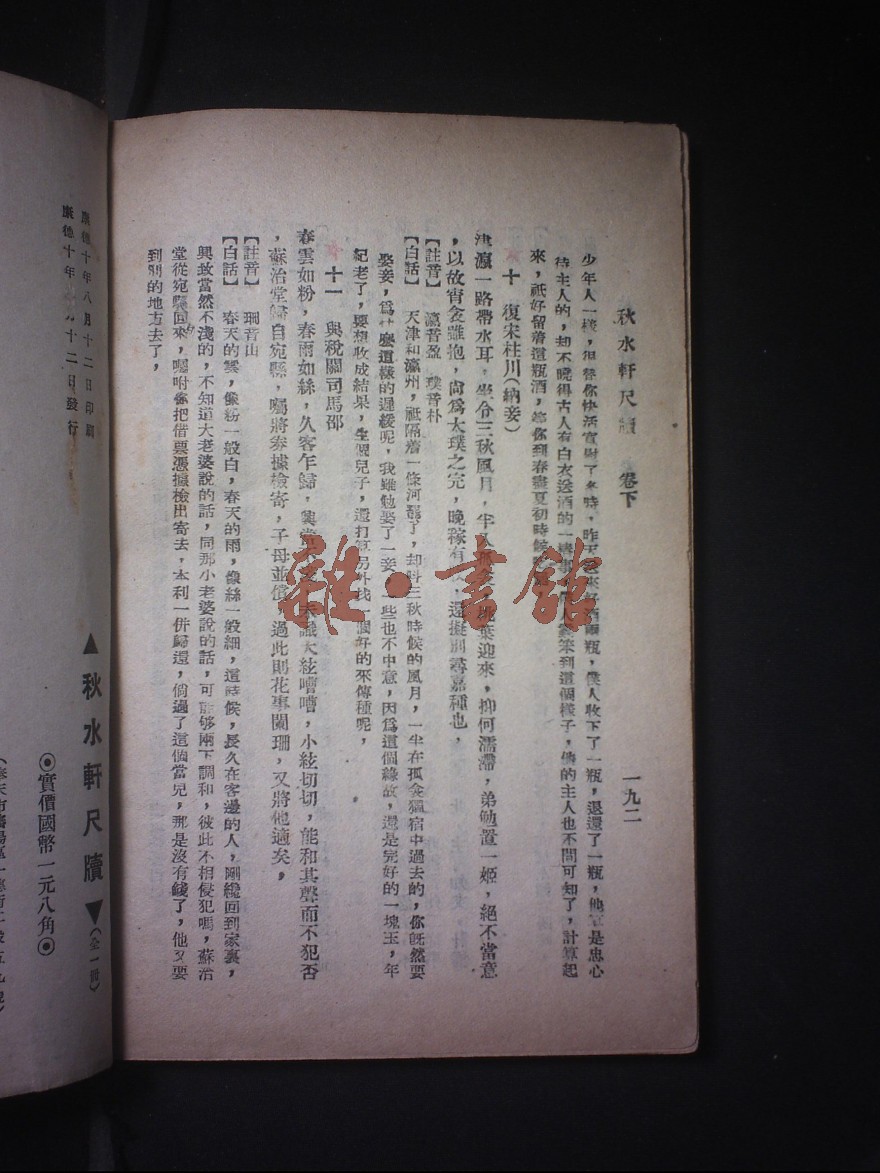 秋水軒尺牘　卷下　一九二
少年人一樣，但替你快活
待主人的，却不曉得古人有白衣送酒的一樁事，
來，祇好留着這瓶酒，等你到春盡夏初時候
十　復宋杜川（納妾）
津瀛一路帶水耳，坐令三秋風月，半入孤衾，桃葉迎來，抑何濡滯，弟勉置一姬，絕不當意
，以故宵衾雖抱，尚爲太璞之完，晚稼有秋，還擬別尋嘉種也，
【註音】　瀛音盈　璞音朴
【白話】　天津和瀛州，祇隔着一條河罷了，却料三秋時候的風月，一半在孤衾獨宿中過去的，你旣然要
娶妾，爲什麽這樣的遲緩呢，我雖勉娶了一妾，一些也不中意，因爲這個緣故，還是完好的一塊玉，年
紀老了，要想收成結果，生個兒子，還打算另外找一個好的來傳種呢，
十一　與稅關司馬邵
春雲如粉，春雨如絲，久客乍歸，興當不淺，未識大絃嘈嘈，小絃切切，能和其聲而不犯否
，蘇治堂歸自宛縣，囑將劵據檢寄，子母並償，過此則花事闌珊，又將他適矣，
【註音】　珊音山
【白話】　春天的雲，像粉一般白，春天的雨，像絲一般細，這時候，長久在客邊的人，剛纔回到家裏，
興致當然不淺的，不知道大老婆說的話，同那小老婆說的話，可能够兩下調和，彼此不相侵犯嗎，蘇治
堂從宛縣回來，囑咐你把借票憑據檢出寄去，本利一併歸還，倘過了這個當兒，那是沒有錢了，他又要
到別的地方去了，
雜·書館
康德十年八月十二日印刷
康德十年 月十二日發行
▲秋水軒尺牘▼（全一冊）
◉實價國幣一元八角◉